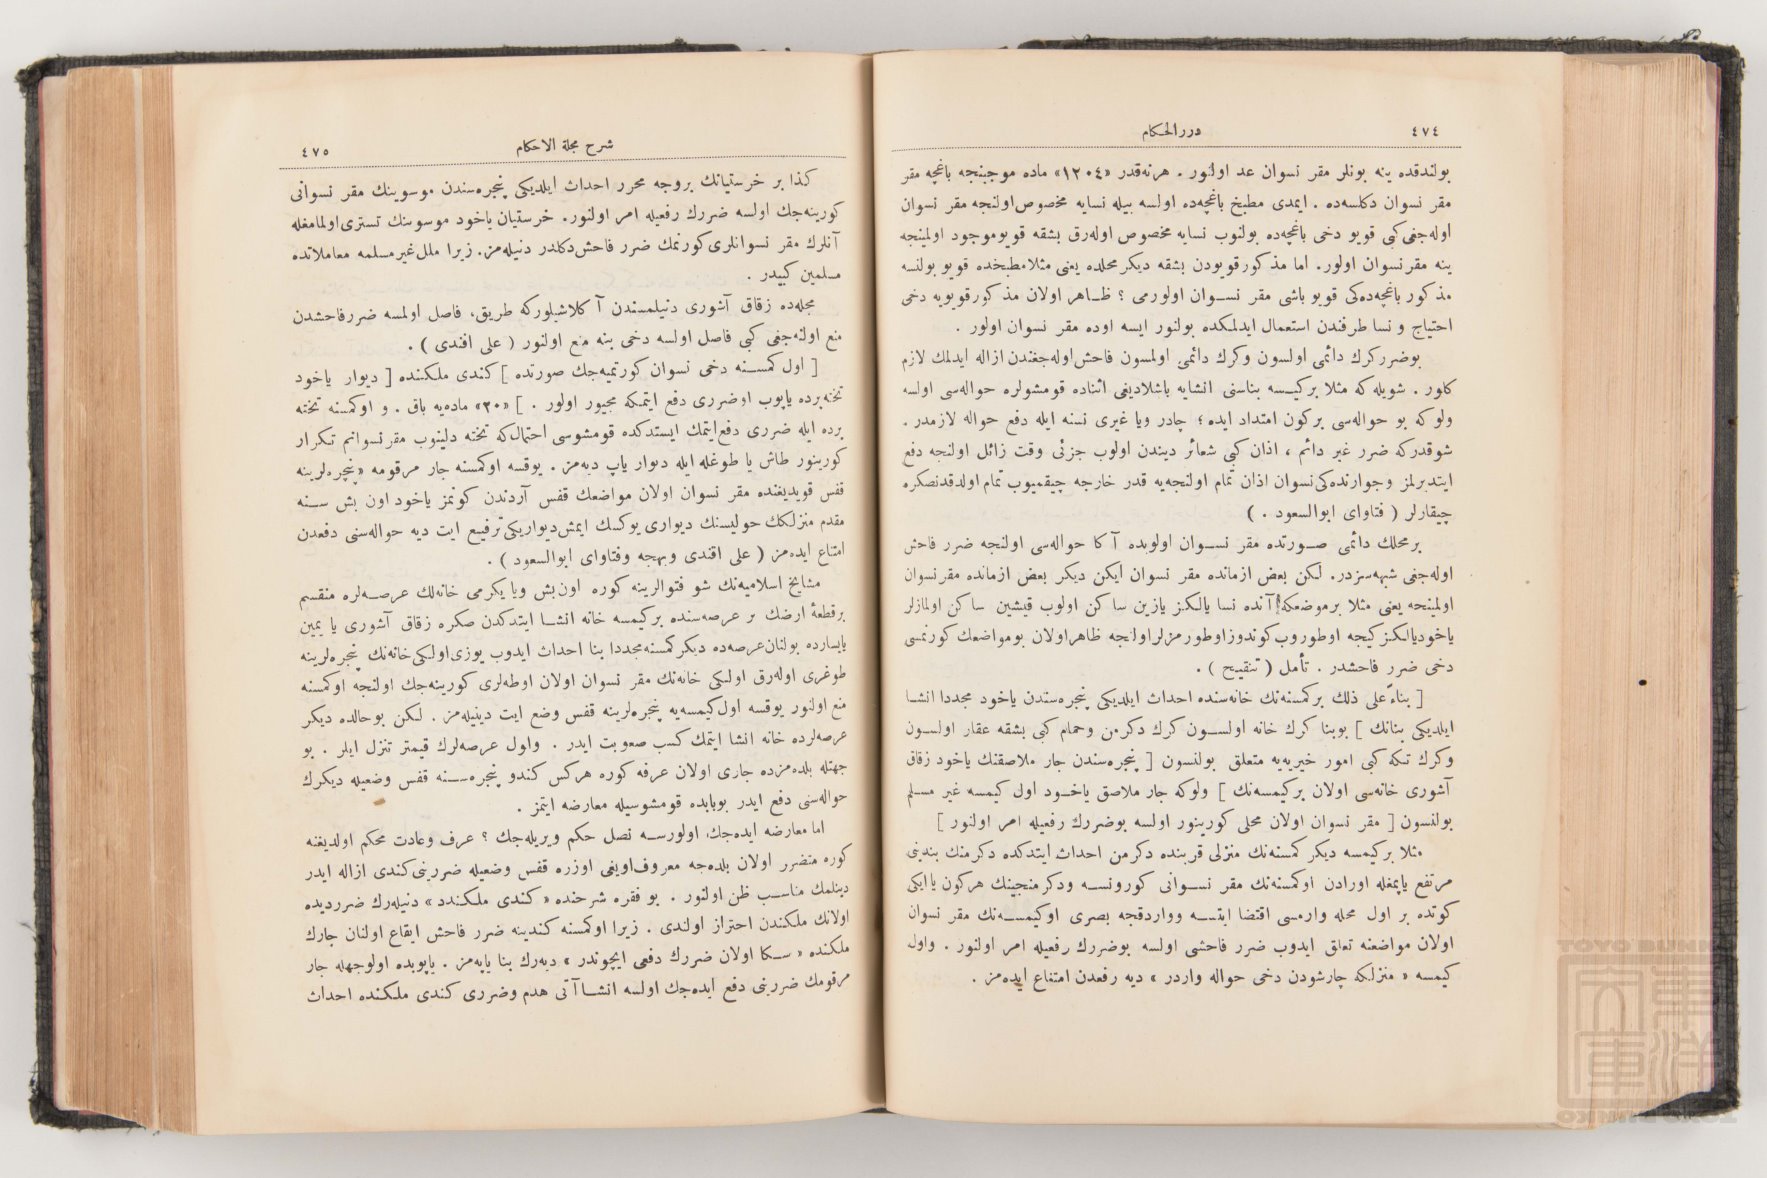 ٤٧٤
دررالحكام
بولندقده ينه بونلر مقر نسوان عد اولنور . هرنه‌قدر «١٢٠٤» ماده موجبنجه باغچه مقر
مقر نسوان دكلسه‌ده . ايمدى مطبخ باغچه‌ده اولسه بيله نسايه مخصوص اولنجه مقر نسوان
اوله‌جغى كبى قويو دخى باغچه‌ده بولنوب نسايه مخصوص اوله‌رق بشقه قويو موجود اولمينجه
ينه مقر نسوان اولور. اما مذكور قويودن بشقه ديكر محلده يعنى مثلا مطبخده قويو بولنسه
مذكور باغچه‌ده‌كى قويو باشى مقر نسوان اولورمى ؟ ظاهر اولان مذكور قويويه دخى
احتياج و نسا طرفندن استعمال ايدلمكده بولنور ايسه اوده مقر نسوان اولور .
بو ضرر كرك دائمى اولسون وكرك دائمى اولمسون فاحش اوله‌جغندن ازاله ايدلمك لازم
كلور . شويله‌كه مثلا بر كيمسه بناسنى انشايه باشلاديغى اثناده قومشولره حواله‌سى اولسه
ولوكه بو حواله‌سى بر كون امتداد ايده ؛ چادر ويا غيرى نسنه ايله دفع حواله لازمدر .
شوقدركه ضرر غير دائم ، اذان كبى شعائر ديندن اولوب جزئى وقت زائل اولنجه دفع
ايتدبرلمز وجوارنده‌كى نسوان اذان تمام اولنجه‌يه قدر خارجه چيقميوب تمام اولدقدنصكره
چيقارلر ( فتاواى ابوالسعود . )
بر محلك دائمى صورتده مقر نسوان اولوبده آكا حواله‌سى اولنجه ضرر فاحش
اوله‌جغى شبهه‌سزدر. لكن بعض ازمانده مقر نسوان ايكن ديكر بعض ازمانده مقر نسوان
اولمينجه يعنى مثلا بر موضعكه آنده نسا يالكز يازين ساكن اولوب قيشين ساكن اولمازلر
ياخود يالكز كيجه اوطوروب كوندوز اوطورمزلر اولنجه ظاهر اولان بو مواضعك كورنمسى
دخى ضرر فاحشدر . تأمل ( تنقيح ) .
[ بناءً على ذلك بر كمسنه‌نك خانه‌سنده احداث ايلديكى پنجره‌سندن ياخود مجددا انشا
ايلديكى بنانك ] بو بنا كرك خانه اولسون كرك دكرمن وحمام كبى بشقه عقار اولسون
وكرك تكه كبى امور خيريه‌يه متعلق بولنسون [ پنجره‌سندن جار ملاصقنك ياخود زقاق
آشورى خانه‌سى اولان بر كيمسه‌نك ] ولوكه جار ملاصق ياخود اول كيمسه غير مسلم
بولنسون [ مقر نسوان اولان محلى كورينور اولسه بو ضررك رفعيله امر اولنور ]
مثلا بر كيمسه ديكر كمسنه‌نك منزلى قربنده دكرمن احداث ايتدكده دكرمنك بندينى
مرتفع ياپمغله اورادن اوكمسنه‌نك مقر نسوانى كورونسه ودكرمنجينك هركون يا ايكى
كونده بر اول محله وارمسى اقتضا ايتسه وواردقجه بصرى اوكيمسه‌نك مقر نسوان
اولان مواضعنه تعلق ايدوب ضرر فاحشى اولسه بو ضررك رفعيله امر اولنور . واول
كيمسه « منزلكه چارشودن دخى حواله واردر » ديه رفعدن امتناع ايده‌مز .
شرح مجلة الاحكام
٤٧٥
كذا بر خرستيانك بروجه محرر احداث ايلديكى پنجره‌سندن موسوينك مقر نسوانى
كورينه‌جك اولسه ضررك رفعيله امر اولنور. خرستيان ياخود موسوينك تسترى اولمامغله
آنلرك مقر نسوانلرى كورنمك ضرر فاحش دكلدر دنيله‌مز. زيرا ملل غير مسلمه معاملاتده
مسلمين كبيدر .
مجله‌ده زقاق آشورى دنيلمسندن آكلاشيلوركه طريق، فاصل اولمسه ضرر فاحشدن
منع اولنه‌جغى كبى فاصل اولسه دخى ينه منع اولنور ( على افندى ) .
[ اول كمسنه دخى نسوان كورنميه‌جك صورتده ] كندى ملكنده [ ديوار ياخود
تخته پرده ياپوب او ضررى دفع ايتمكه مجبور اولور . ] «٣٠» ماده‌يه باق . و اوكمسنه تخته
پرده ايله ضررى دفع ايتمك ايستدكده قومشوسى احتمال‌كه تخته دلينوب مقر نسوانم تكرار
كورينور طاش يا طوغله ايله ديوار ياپ ديه‌مز . يوقسه اوكمسنه جار مرقومه « پنچره‌لرينه
قفس قويديغنده مقر نسوان اولان مواضعك قفس آردندن كونمز ياخود اون بش سنه
مقدم منزلكك حوليسنك ديوارى يوكسك ايمش ديواريكى ترفيع ايت ديه حواله‌سنى دفعدن
امتناع ايده‌مز ( على افندى وبهجه وفتاواى ابوالسعود ) .
مشايخ اسلاميه‌نك شو فتوالرينه كوره اون بش ويا يكرمى خانه‌لك عرصه‌لره منقسم
بر قطعهٔ ارضك بر عرصه‌سنده بر كيمسه خانه انشا ايتدكدن صكره زقاق آشورى يا يمين
يا يسارده بولنان عرصه‌ده ديكر كمسنه مجددا بنا احداث ايدوب يوزى اولكى خانه‌نك پنجره‌لرينه
طوغرى اوله‌رق اولكى خانه‌نك مقر نسوان اولان اوطه‌لرى كورينه‌جك اولنجه اوكمسنه
منع اولنور يوقسه اول كيمسه‌يه پنجره‌لرينه قفس وضع ايت دينيله‌مز . لكن بو حالده ديكر
عرصه‌لرده خانه انشا ايتمك كسب صعوبت ايدر . واول عرصه‌لرك قيمتز تنزل ايلر . بو
جهتله بلده‌مزده جارى اولان عرفه كوره هركس كندو پنجره‌سنه قفس وضعيله ديكرك
حواله‌سنى دفع ايدر بوبابده قومشوسيله معارضه ايتمز .
اما معارضه ايده‌جك اولورسه نصل حكم ويريله‌جك ؟ عرف وعادت محكم اولديغنه
كوره متضرر اولان بلده‌جه معروف اولديغى اوزره قفس وضعيله ضررينى كندى ازاله ايدر
دينلمك مناسب ظن اولنور . بو فقره شرحنده « كندى ملكنده » دنيله‌رك ضررديده
اولانك ملكندن احتراز اولندى . زيرا اوكمسنه كندينه ضرر فاحش ايقاع اولنان جارك
ملكنده « سكا اولان ضررك دفعى ايچوندر » ديه‌رك بنا ياپه‌مز . ياپوبده اولوجهله جار
مرقومك ضررينى دفع ايده‌جك اولسه انشاآتى هدم وضررى كندى ملكنده احداث
TOYO BUNKO
東洋文庫